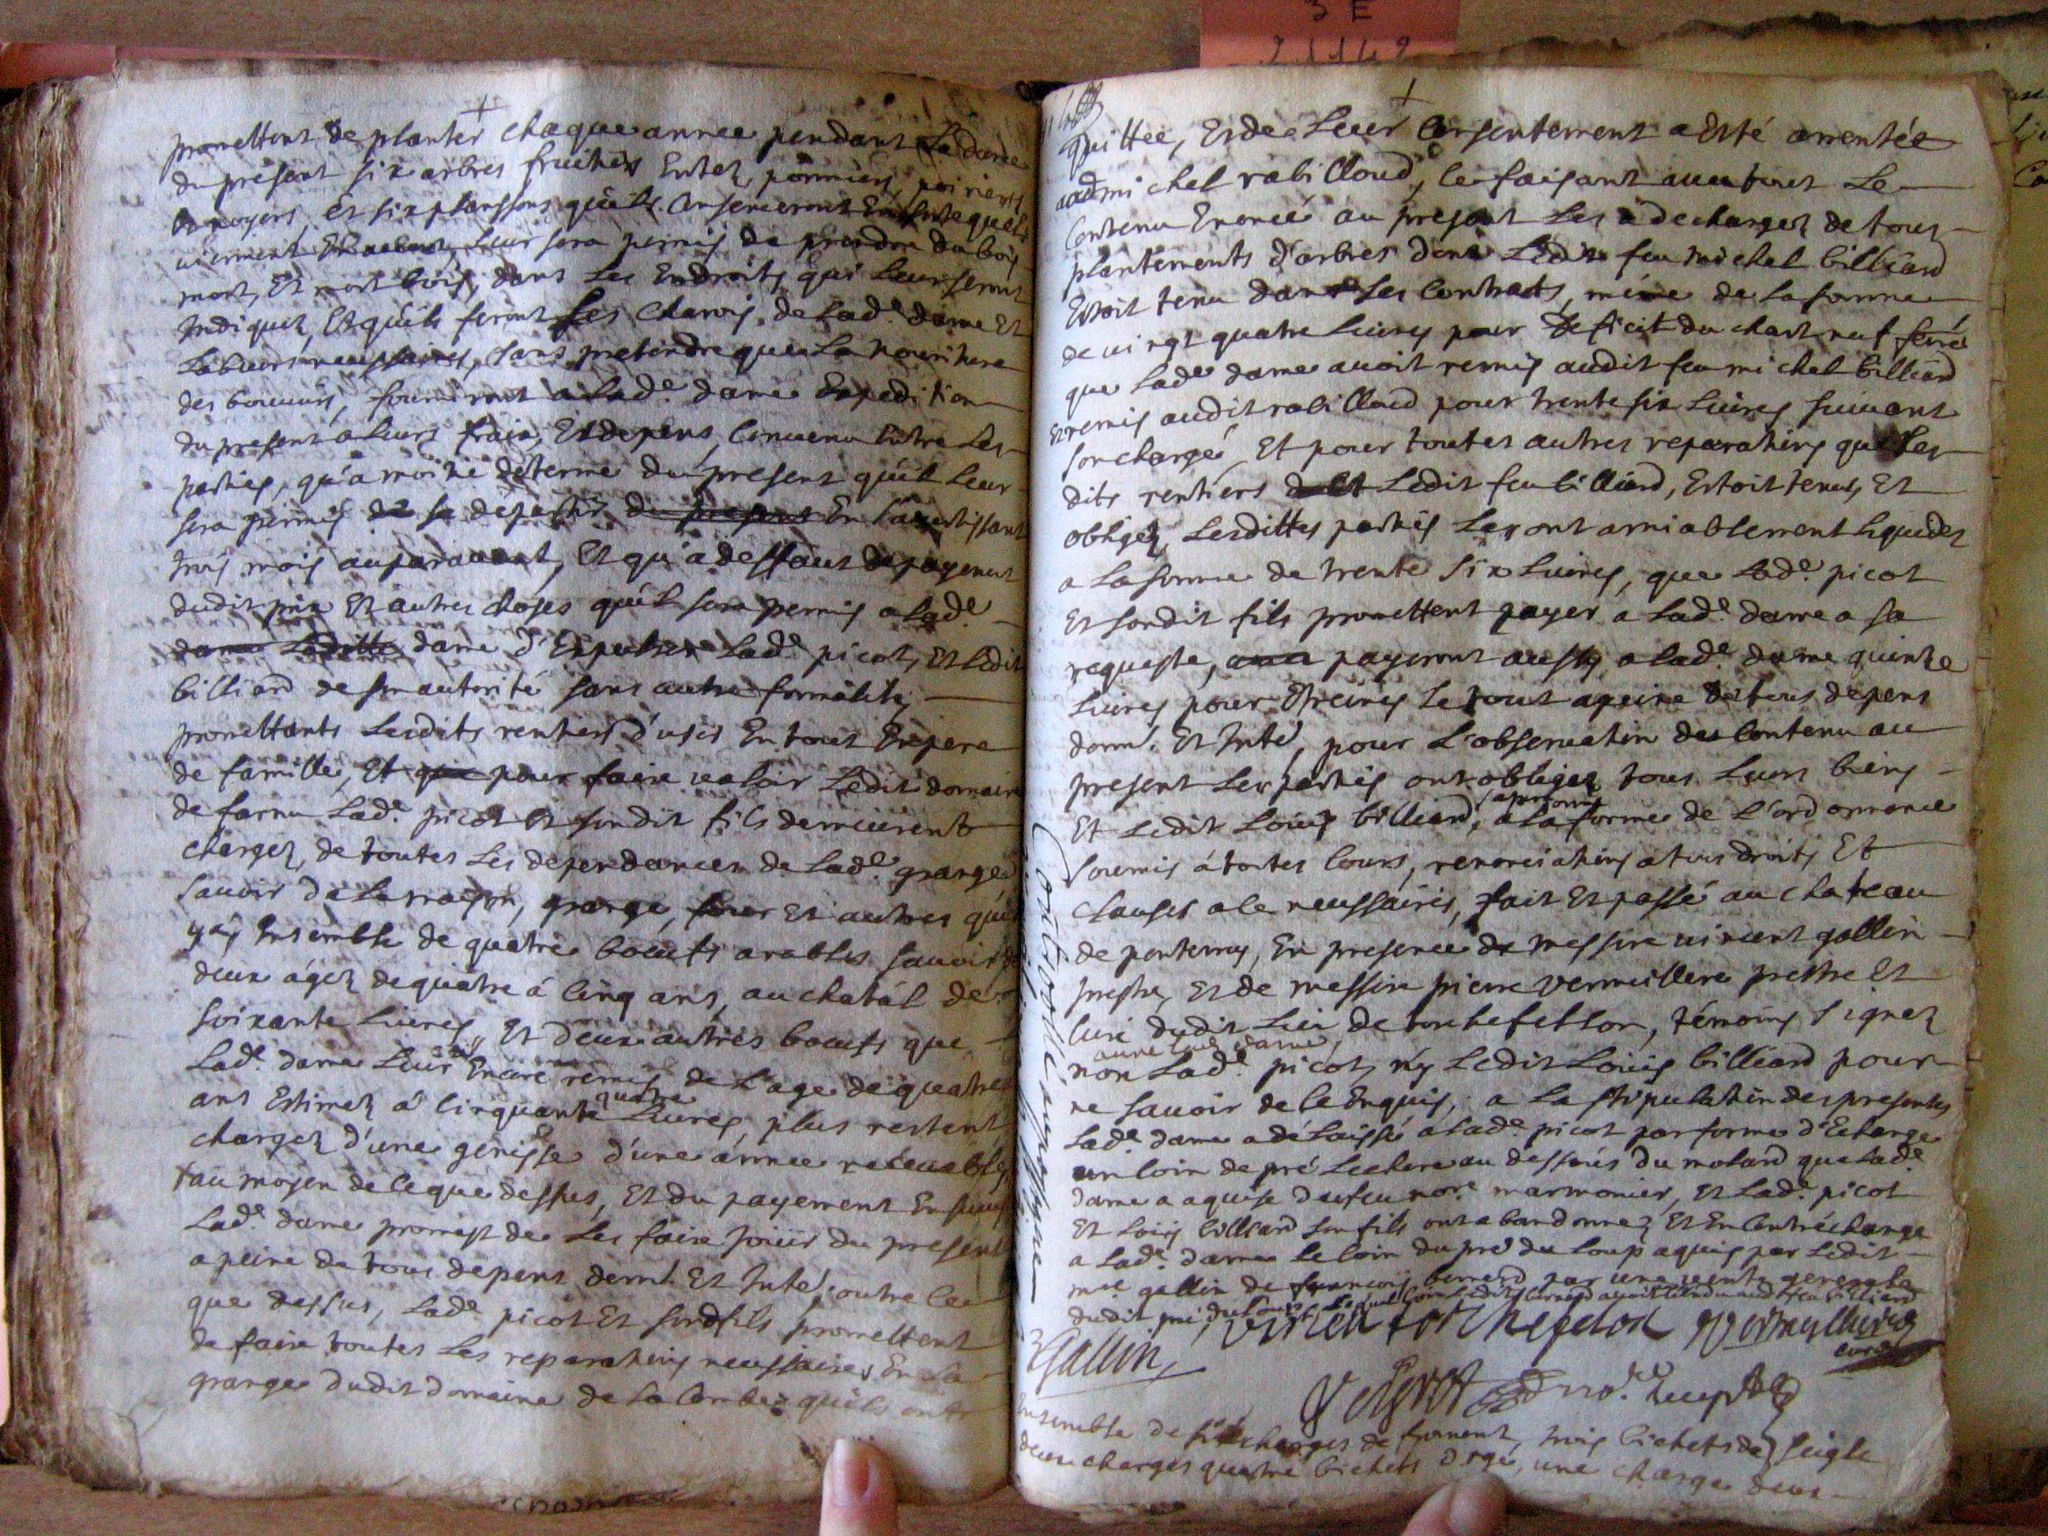 3 E
promettent de planter chaque annee pendant
du present six arbres fruitiers Entez, pommiers, poiriers
Et noyers et six planssons quils Conserveront
leur sera permis de prendre du bois
mort, Et mort bois, dans Les Endroits qui Leur seront
Indiquez, Et quils feront Les Charois de Lad.e dame Et
Labeurs neussaires, sans pretendre que La nouriture
des bouviers, fourniront a Lad.e dame Expedition
du present a Leurs frais, Et depens, Convenu Entre Les
parties, qu'a moitié de terme du present qu'il Leur
sera permis de se departir du present En s'avertissant
trois mois auparavant, Et qu'a deffaut de payement
dudit prix Et autres choses qu'il sera permis a Lad.e
dame Laditte dame d'Expulser Lad.e picot, Et Ledit
billiard de son autorité sans autre formalité
promettants Lesdits rentiers d'user En tout En pere
de famille, Et pour faire valoir Ledit domaine
de farnu Lad.e picot Et sondit fils demeurent
chargez, de toutes Les dependances de Lad.e grange
savoir de La maison, grange, four Et autres qu'il
y a, Ensemble de quatre boeufs arables savoir
deux agez de quatre á Cinq ans, au chatal de
soixante Livres, Et deux autres boeufs que
Lad.e dame Leur a Encore remis de L'age de quatre
ans Estimez á Cinquante quatre Livres, plus restent
chargez d'une genisse d'une annee
au moyen de Ce que dessus, Et du payement
Lad.e dame promet de Les faire Jouir du present
a peine de tous depens dom. Et Inté. outre Ce
que dessus, Lad.e picot Et sond fils promettent
de faire toutes Les reparations neussaires En La
grange dudit domaine de La Combe quils ont
quittée, Et de Leur Consentement a Esté arrentée
aud michel rabilloud, Ce faisant
Contenu Enoncé au present Les a dechargez de tous
plantements d'arbres dont Led feu michel billiard
Estoit tenu dans Les Contracts, même de La somme
de vingt quatre Livres pour deficit du chart neuf ferré
que Lad.e dame avoit remis audit feu michel billiard
Et remis audit rabilloud pour trente six Livres suivant
son chargé, Et pour toutes autres reparations que Les
dits rentiers Ledit feu billiard, Estoit tenu, Et
obligez, Lesdittes parties Les ont amiablement Liquidez
a La somme de trente six Livres, que Lad.e picot
Et sondit fils promettent payer a Lad.e dame a sa
requeste, payeront aussy a Lad.e dame quinze
Livres pour Estreines Le tout a peine de tous depens
dom. Et Inté, pour L'observation du Contenu au
present Les parties ont obligez tous Leurs biens
Et Ledit Louis billiard, sa personne a La forme de L'ordonnance
soumis á toutes Cours, renonciations a tous droits Et
Clauses a Ce neussaires, fait Et passé au chateau
de ponterray, En presence de messire vincent gallin
prestre, Et de messire pierre vermeillere prestre Et
Curé dudit Lieu de torchefellon, témoins signez
avec Lad.e dame,
non Lad.e picot, ny Ledit Louis billiard pour
ne savoir de Ce Enquis, a La stipulation des presentes
Lad.e dame a délaissé a Lad.e picot par forme d'Echange
un Coin de pré Lechere au dessous du molard que Lad.e
dame a aquise dufeu no.re marmonier, Et Lad.e picot
Et Louis billiard son fils ont abandonnez Et En Contréchange
a Lad.e dame Le Coin du pré du Loup aquis par Ledit
m.re gallin de francois bernard par une vente generale
dudit pré du Loup
Virieu torchefelon Vermeillere
curé
Gallin
Ensemble de six charges de froment, trois bichets de seigle
deux charges quatre bichets orge, une charge deux